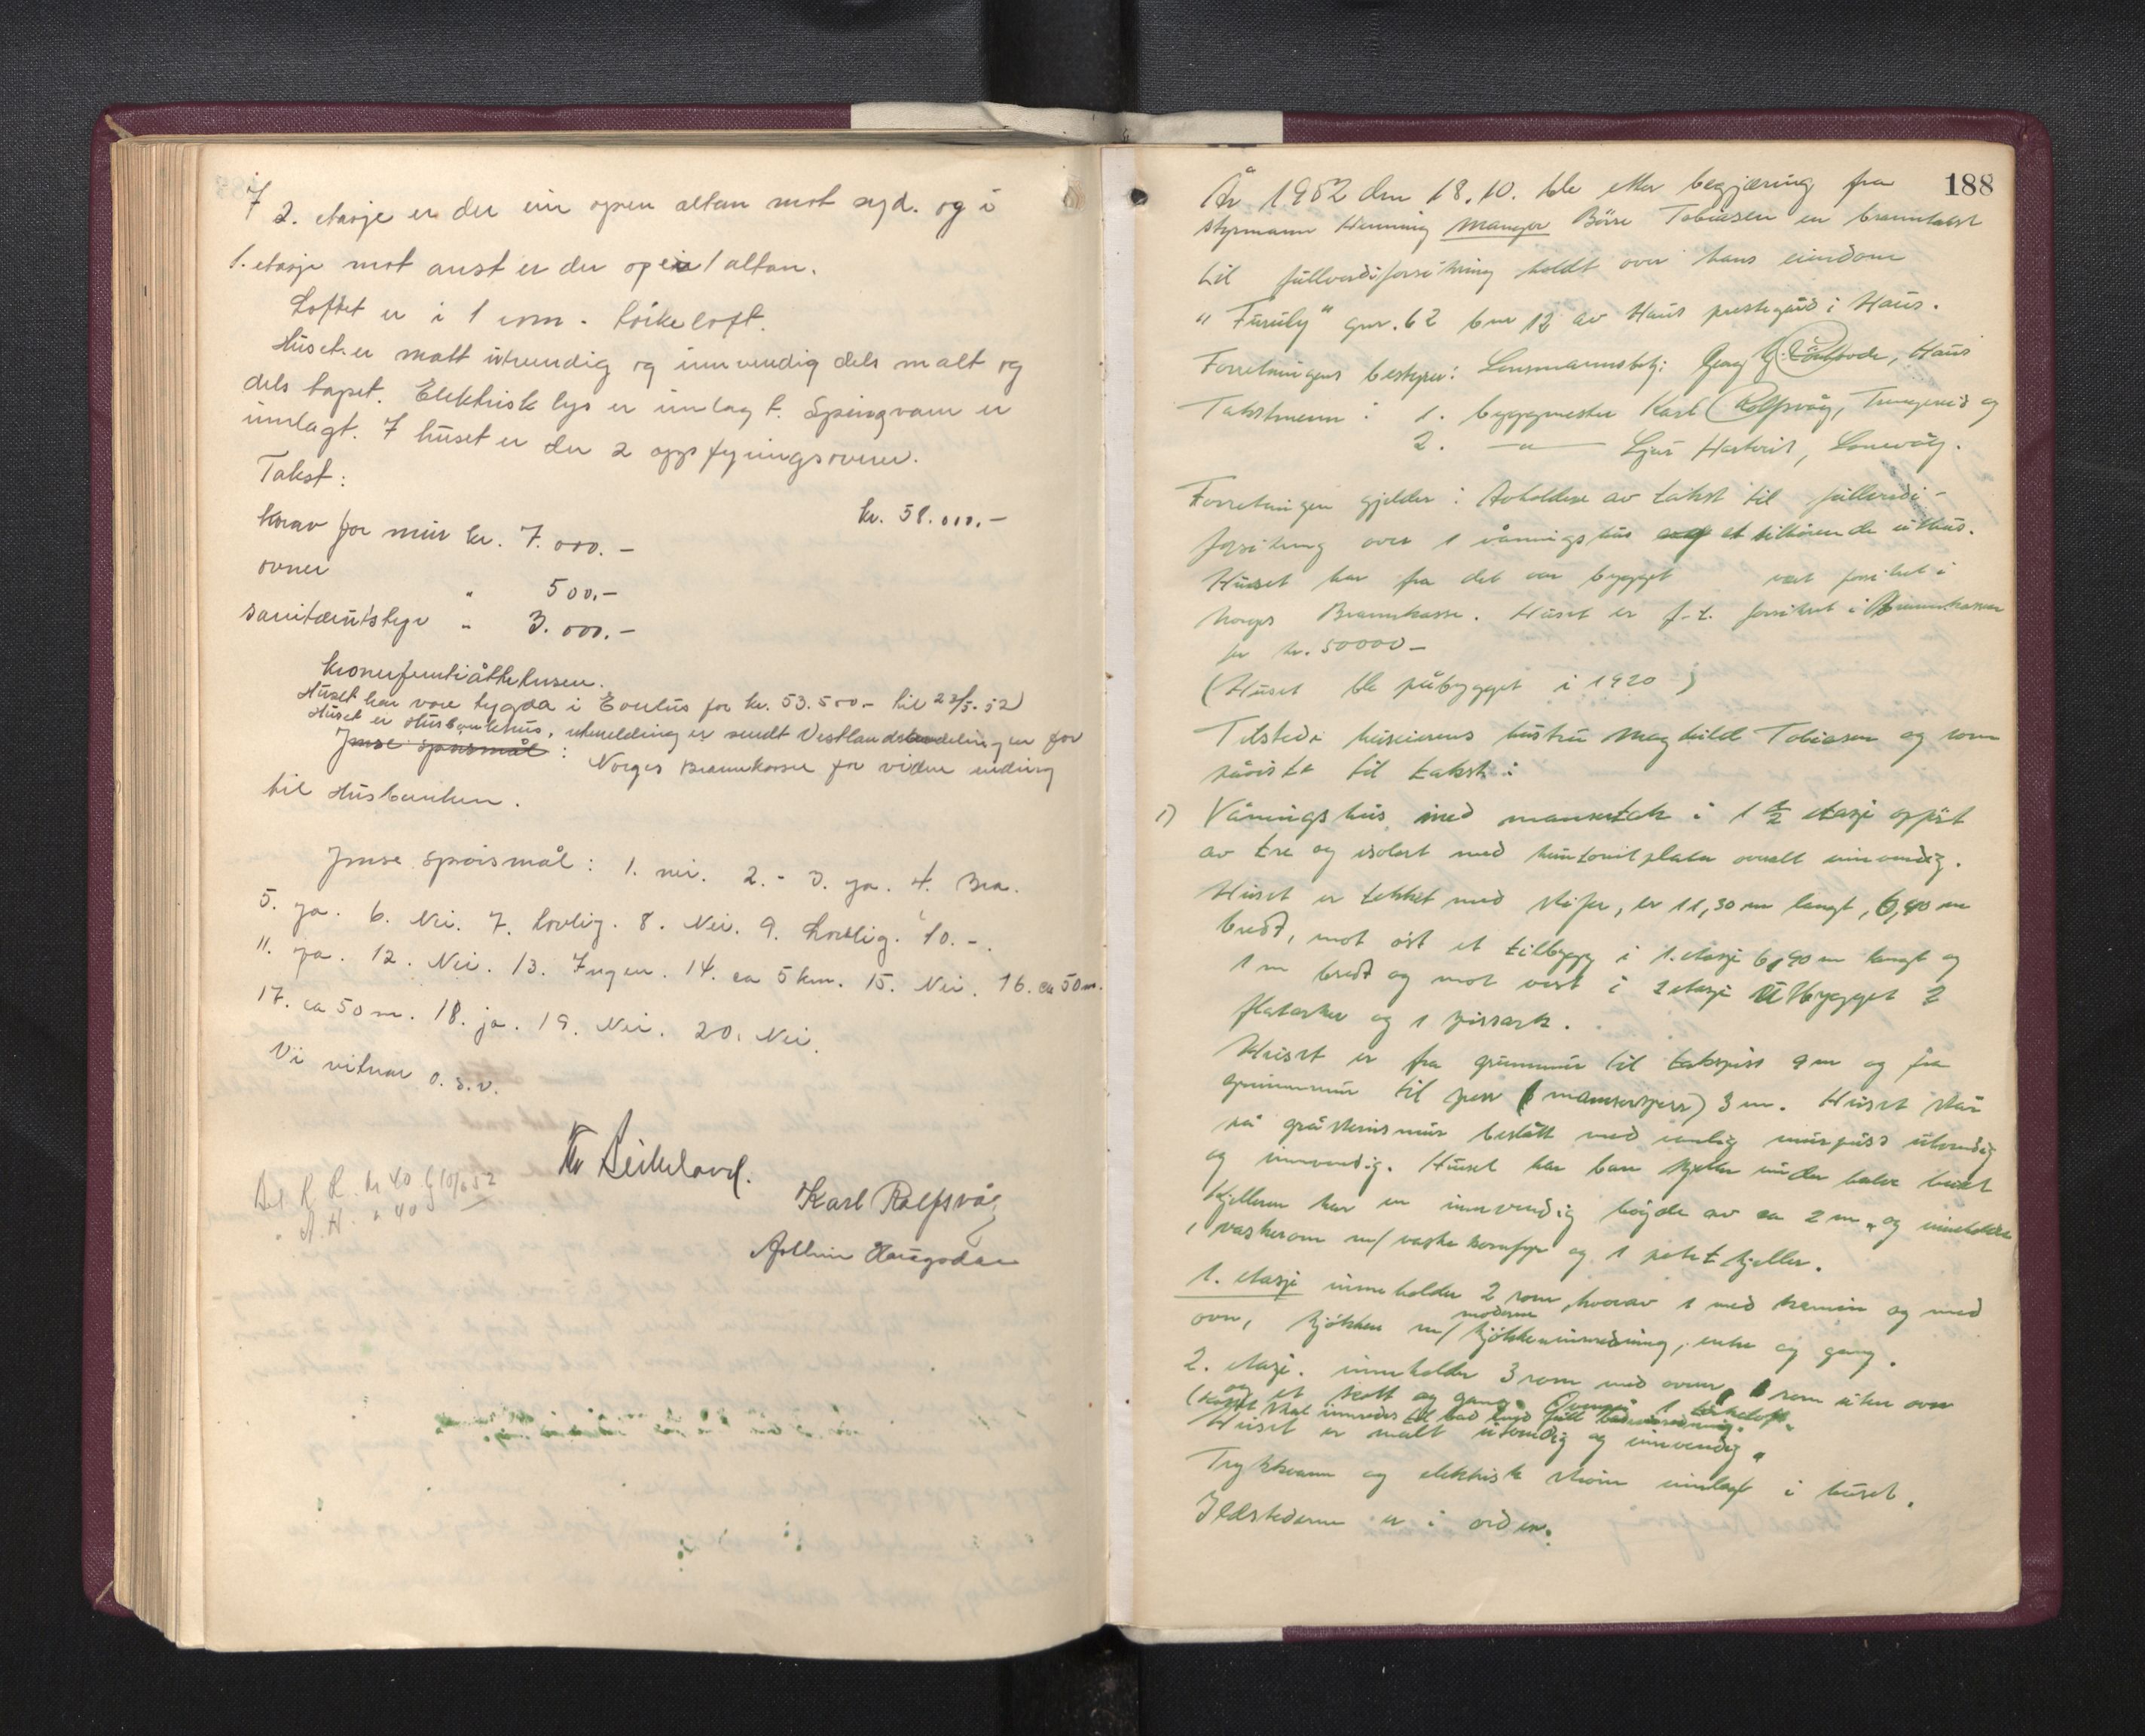 I 2. etasje er der ein open altan mot syd. og i
1. etasje mot aust er der open 1 altan.
Loftet er i 1 rom - törkeloft.
Huset er malt utvendig og innvendig dels malt og
dels tapet. Elektrisk lys er innlagt. Springvann er
innlagt. I huset er der 2 oppfyringsovner.
Takst: kr. 58.000.-
Krav for mur kr. 7.000.-
ovner " 500.-
sanitærutstyr " 3.000.-
Kronerfemtiåttetusen.
Huset har vore trygda i for kr. 53.500.- til 23/5-52)
Huset er Husbankhus, utmelding er sendt Vestlandsavdelingen for
Ymse spörsmål : Norges Brannkasse for vidare sending
til Husbanken.
Ymse spörsmål : 1. nei. 2. - 3. ja. 4. Bra.
5. ja. 6. Nei. 7. Lovlig. 8. Nei. 9. Lovlig. 10. -.
11. ja. 12. Nei. 13. Ingen. 14. ca 5 km. 15. Nei. 16. ca 50 m.
17. ca 50 m. 18. ja. 19. Nei. 20. Nei.
Vi vitnar o.s.v.
Karl Rolfsvåg
Haugsdal
188
År 1952 den 18.10. ble etter begjæring fra
styrmann Henning Manger Börre Tobiasen en branntakst
til fullverdiforsikring holdt over hans eiendom
"Furuly" gnr. 62 bnr 12 av Haus prestegård i Haus.
Forretningens bestyrer: Lensmannsbetj: Georg Haus
Takstmenn : 1. byggmester Karl Rolfsvåg, Tunesveit og
2. —"— Hartveit, Lonevåg.
Forretningen gjelder : Avholdelse av takst til fullverdi-
forsikring over 1 våningshus og et tilhörende uthus.
Huset har fra det var bygget vært forsikret i
Norges Brannkasse. Huset er f.t. forsikret i Brannkassen
for kr. 50000-
(Huset ble påbygget i 1920)
Tilstede huseierens hustru Maghild Tobiasen og som
påviste til takst :
1) Våningshus med mansertak i 1 1/2 etasje oppfört
av tre og isolert med huntonitplater overalt innvendig.
Huset er tekket med skifer, er 11,30 m langt, 6,90 m
bredt, mot öst et tilbygg i 1. etasje 6,90 m langt og
1 m bredt og mot vest i 2 etasje utbygget 2
flatarker og 1 spissark.
Huset er fra grunnmur til takspiss 9 m og fra
grunnmur til gesa (mansergesa) 3 m. Huset står
på gråsteinsmur beslått med vanlig murpuss utvendig
og innvendig. Huset har bare kjeller under halve huset
Kjelleren har en innvendig höyde av ca 2 m, og inneholder
1 vaskerom m/ vaske komfyr og 1 potetkjeller.
1. etasje inneholder 2 rom, hvorav 1 med kamin og med
ovn, kjökken m/ moderne kjökkeninnredning, entre og gang.
2. etasje. inneholder 3 rom med ovner, 1 rom uten ovn
og et kott og gang. Överst 1 törkeloft.
(Kottet skal innredes til bad med full badeinnredning.
Huset er malt utvendig og innvendig.
Trykkvann og elektrisk ström innlagt i huset.
Ildstederne er i orden.